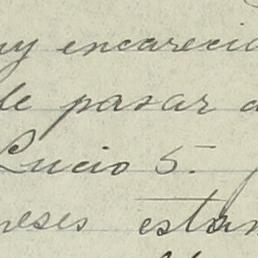 muy encarecid
de pasar a
Lucio 5.
neses estan